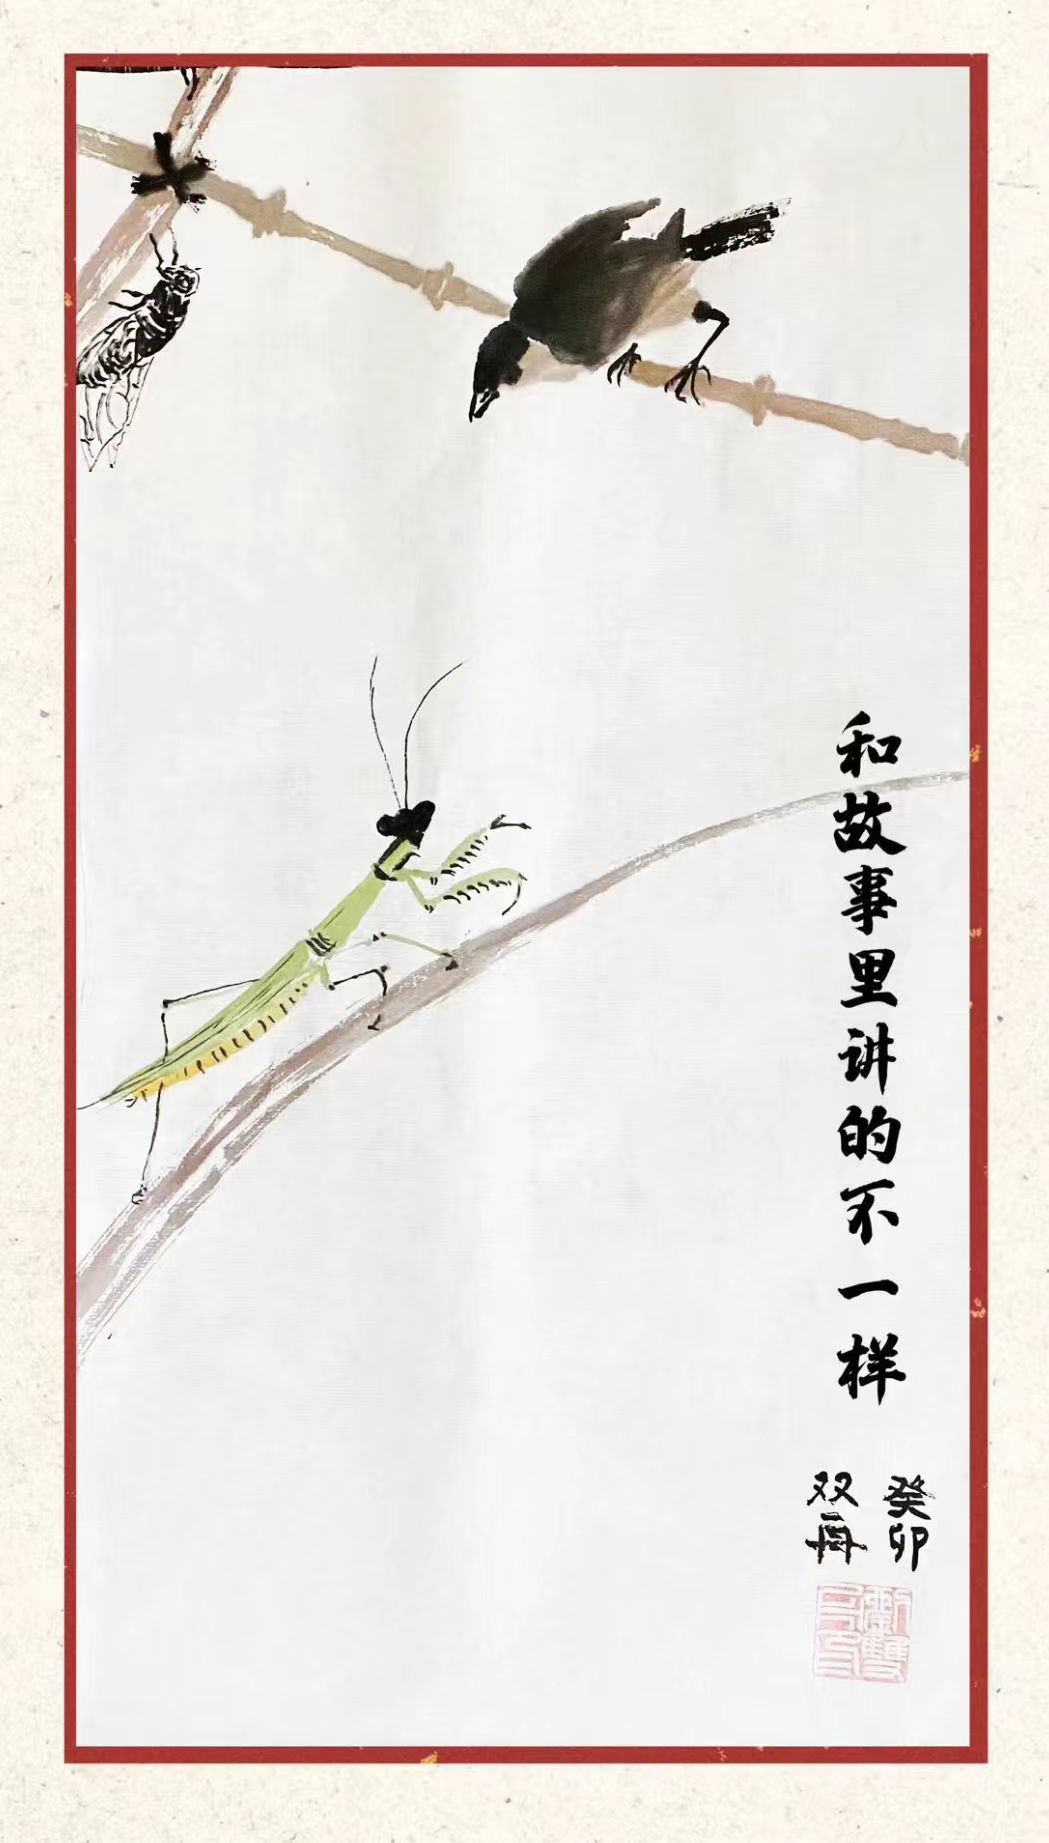 和故事里讲的不一样
癸卯
双再